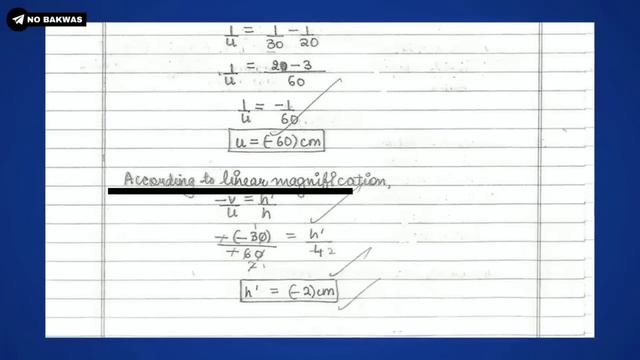 NO BAKWAS
1/u = 1/30 - 1/20
1/u = 2 - 3 / 60
1/u = -1/60
u = (-60) cm
According to linear magnification,
-v/u = h'/h
-(-30)/-60 = h'/42
h' = (-2) cm